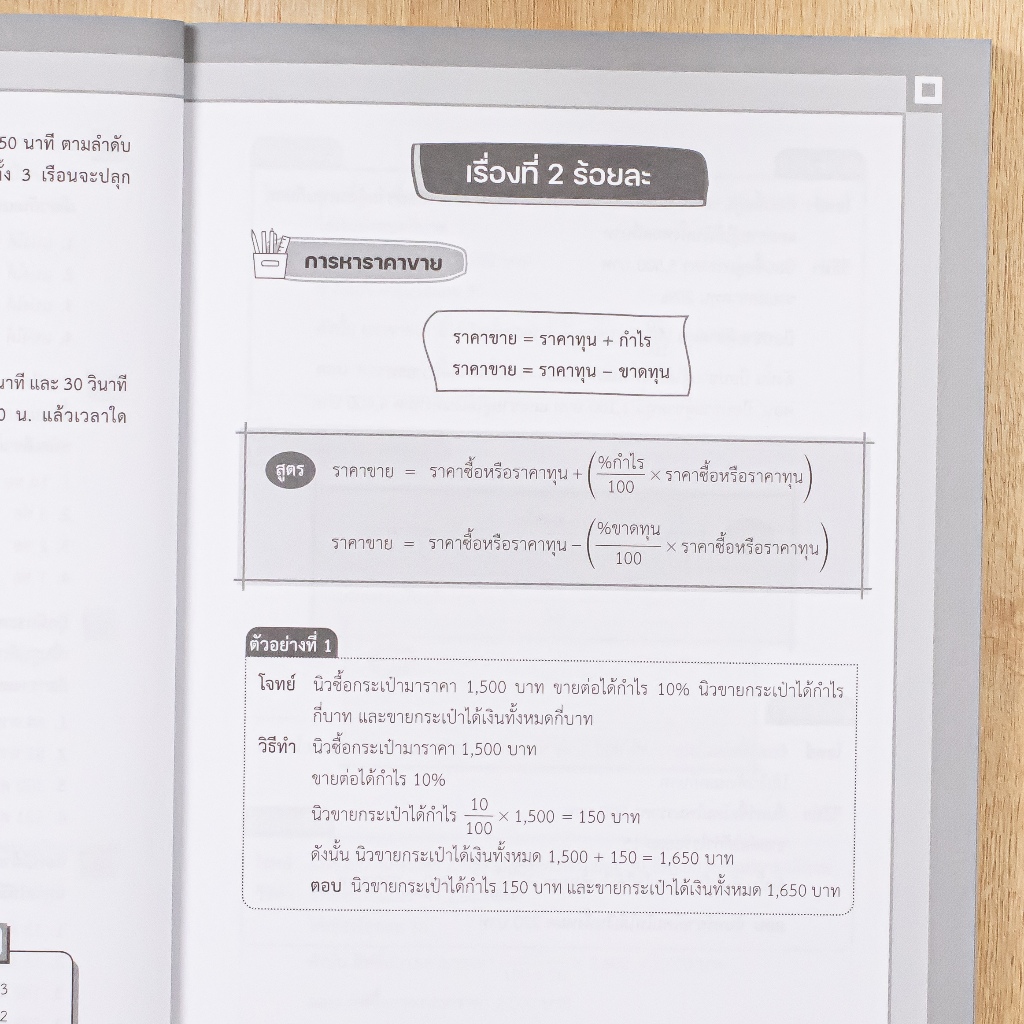 50 นาที ตามลำดับ
3 เรือนจะปลุก
นาที และ 30 วินาที
0 น. แล้วเวลาใด
3
2
เรื่องที่ 2 ร้อยละ
การหาราคาขาย
ราคาขาย = ราคาทุน + กำไร
ราคาขาย = ราคาทุน – ขาดทุน
สูตร ราคาขาย = ราคาซื้อหรือราคาทุน + (%กำไร/100 × ราคาซื้อหรือราคาทุน)
ราคาขาย = ราคาซื้อหรือราคาทุน – (%ขาดทุน/100 × ราคาซื้อหรือราคาทุน)
ตัวอย่างที่ 1
โจทย์ นิวซื้อกระเป๋ามาราคา 1,500 บาท ขายต่อได้กำไร 10% นิวขายกระเป๋าได้กำไร
กี่บาท และขายกระเป๋าได้เงินทั้งหมดกี่บาท
วิธีทำ นิวซื้อกระเป๋ามาราคา 1,500 บาท
ขายต่อได้กำไร 10%
นิวขายกระเป๋าได้กำไร 10/100 × 1,500 = 150 บาท
ดังนั้น นิวขายกระเป๋าได้เงินทั้งหมด 1,500 + 150 = 1,650 บาท
ตอบ นิวขายกระเป๋าได้กำไร 150 บาท และขายกระเป๋าได้เงินทั้งหมด 1,650 บาท